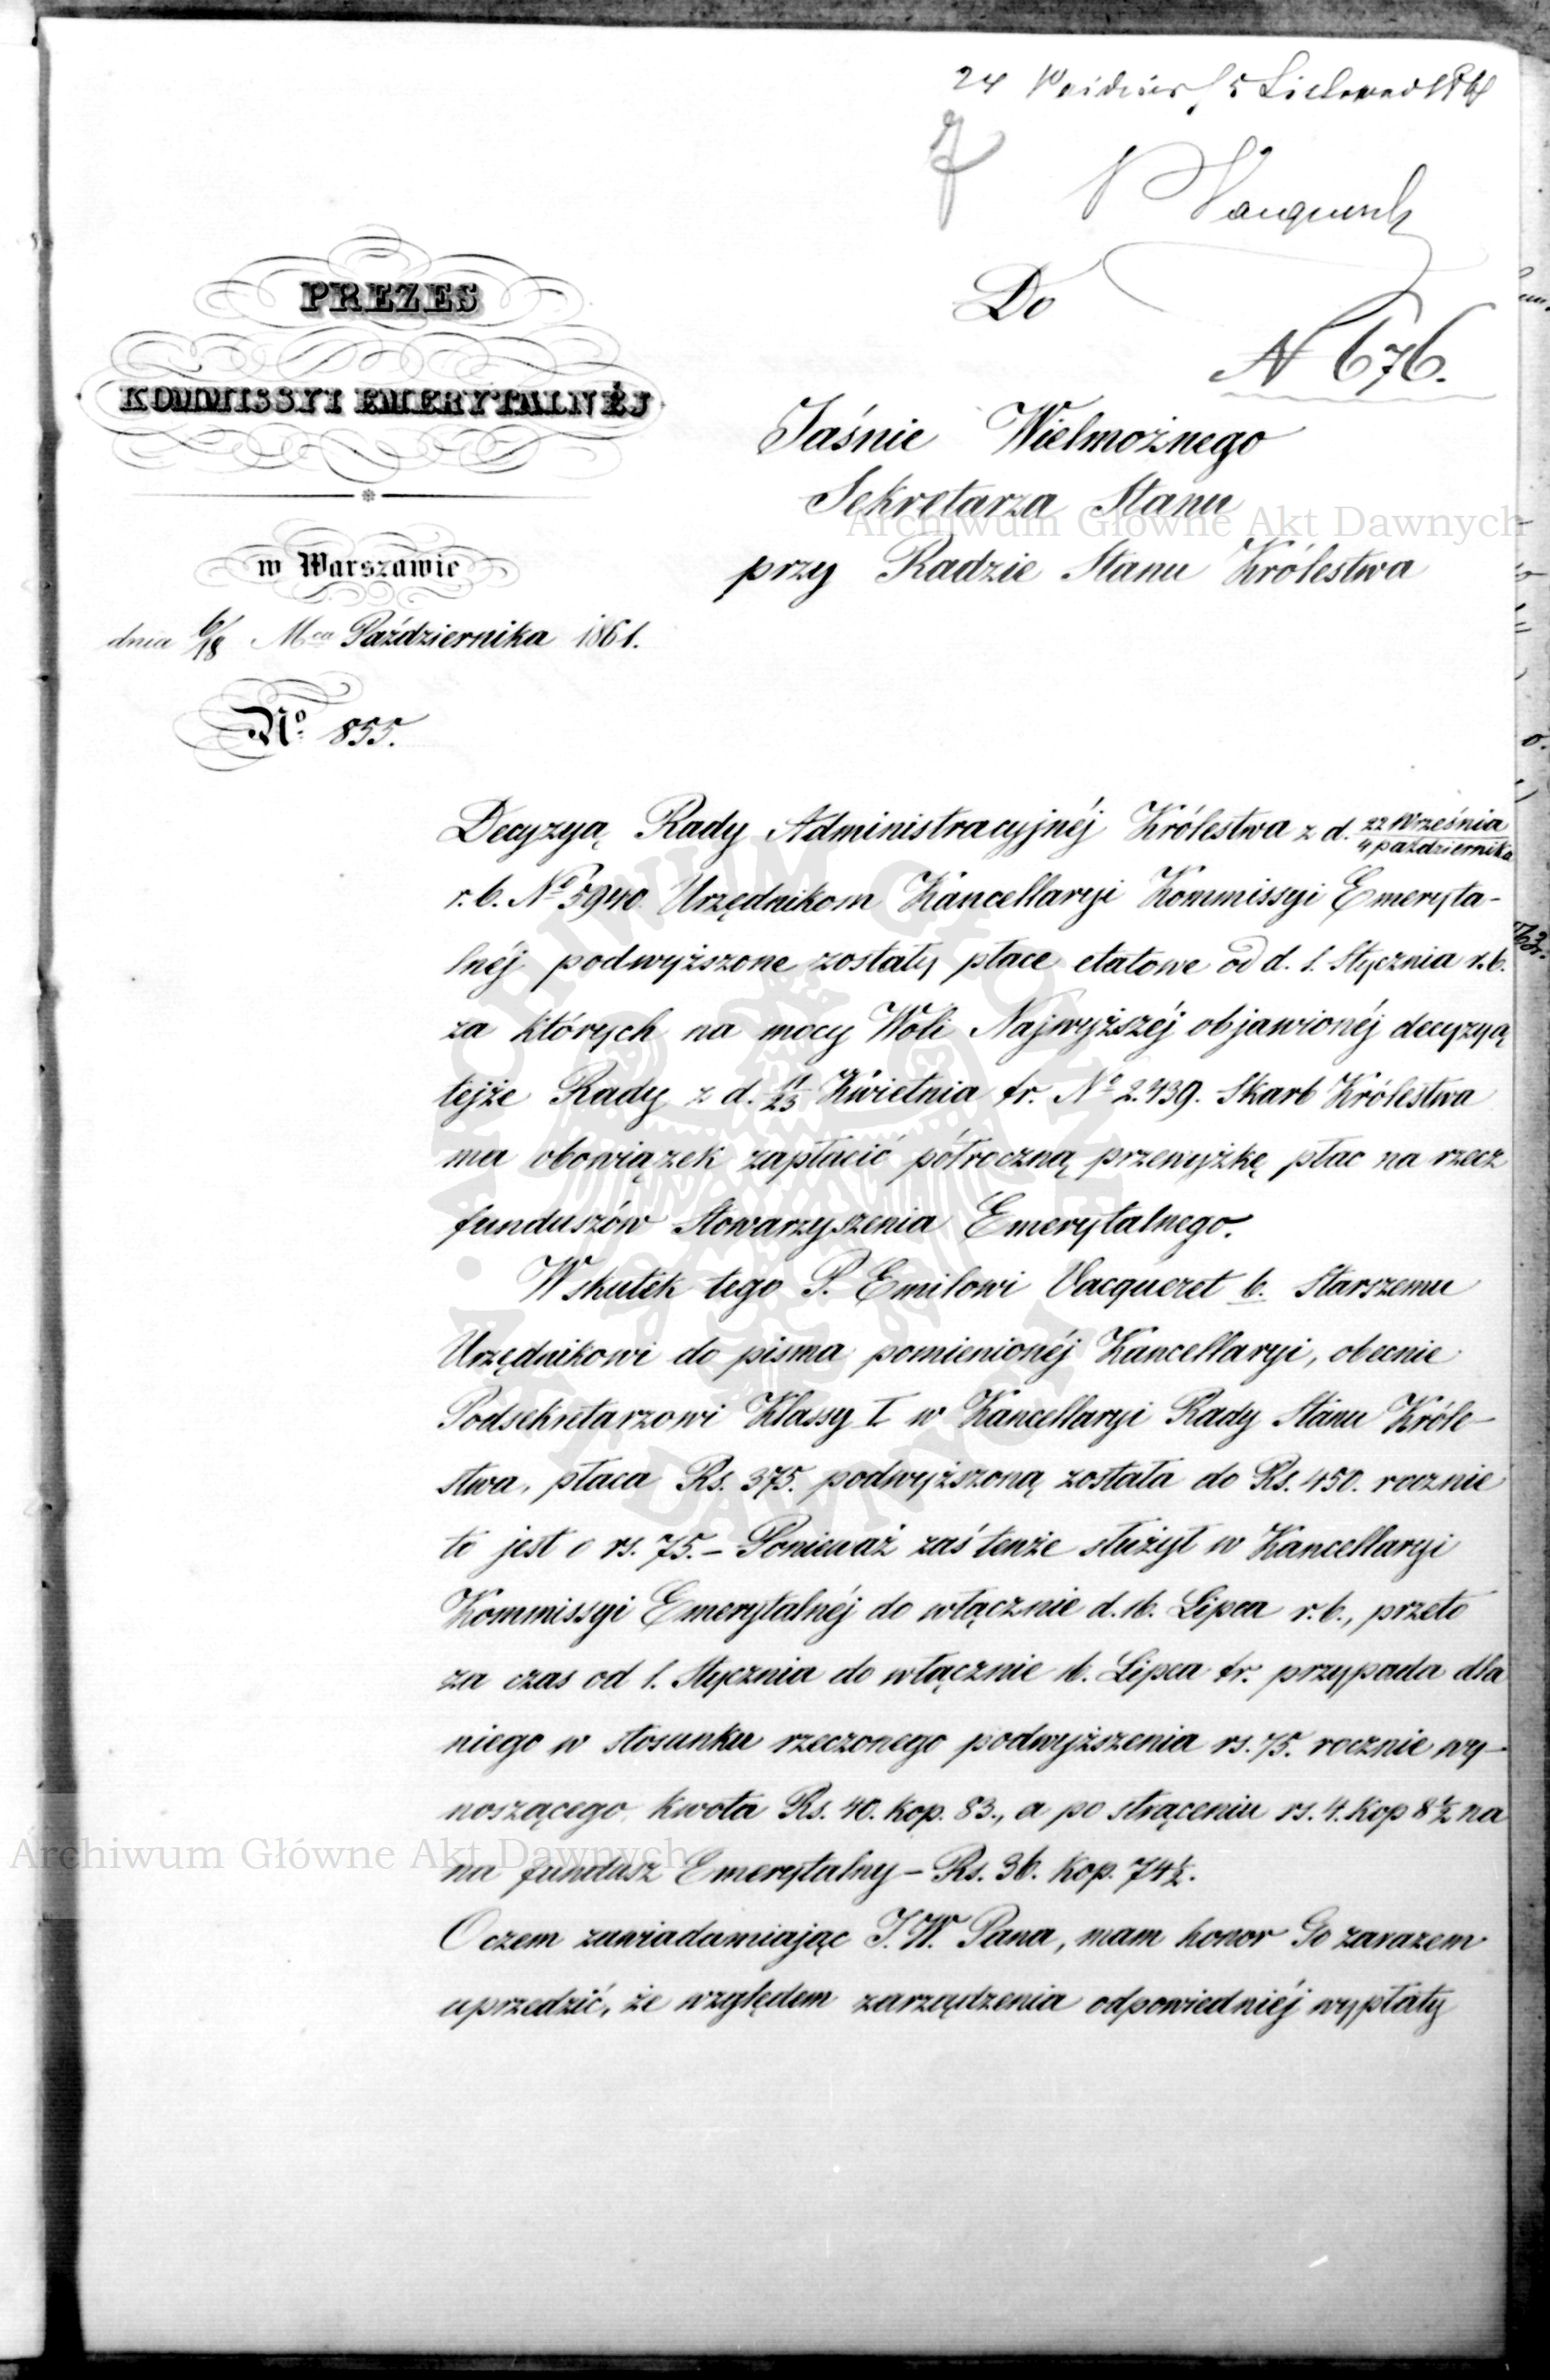 24 Paździer/5 Listopad 1861
Vaqueret
PREZES
KOMMISSYI EMERYTALNÉJ
w Warszawie
dnia 6/18 Mca Października 1861.
No. 855.
Do
N 676.
Jaśnie Wielmożnego
Sekretarza Stanu
przy Radzie Stanu Królestwa
Decyzyą Rady Administracyjnéj Królestwa z d. 22 Września/4 października
r. b. No 5940. Urzędnikom Kancellaryi Kommissyi Emeryta-
lnéj podwyższone zostały płace etatowe od d. 1. Stycznia r. b.
za których na mocy Woli Najwyższéj objawionéj decyzyą
tejże Rady z d. 11/23 Kwietnia tr. No 2.439. Skarb Królestwa
ma obowiązek zapłacić półroczną przewyżkę płac na rzecz
funduszów Stowarzyszenia Emerytalnego.
Wskutek tego P. Emilowi Vacqueret b. Starszemu
Urzędnikowi do pisma pomienionéj Kancellaryi, obecnie
Podsekretarzowi Klassy I w Kancellaryi Rady Stanu Króle-
stwa, płaca Rs. 375. podwyższoną została do Rs. 450. rocznie
to jest o rs. 75. – Ponieważ zaś tenże służył w Kancellaryi
Kommissyi Emerytalnéj do włącznie d. 16. Lipca r. b., przeto
za czas od 1. Stycznia do włącznie 16. Lipca tr. przypada dla
niego w stosunku rzeczonego podwyższenia rs. 75. rocznie wy-
noszącego kwota Rs. 40. kop. 83., a po strąceniu rs. 4. kop 8 1/2 na
na fundusz Emerytalny – Rs. 36. kop. 74 1/2.
O czem zawiadamiając J. W. Pana, mam honor Go zarazem
uprzedzić, że względem zarządzenia odpowiedniéj wypłaty
Archiwum Główne Akt Dawnych
Archiwum Główne Akt Dawnych
ARCHIWUM GŁÓWNE AKT DAWNYCH